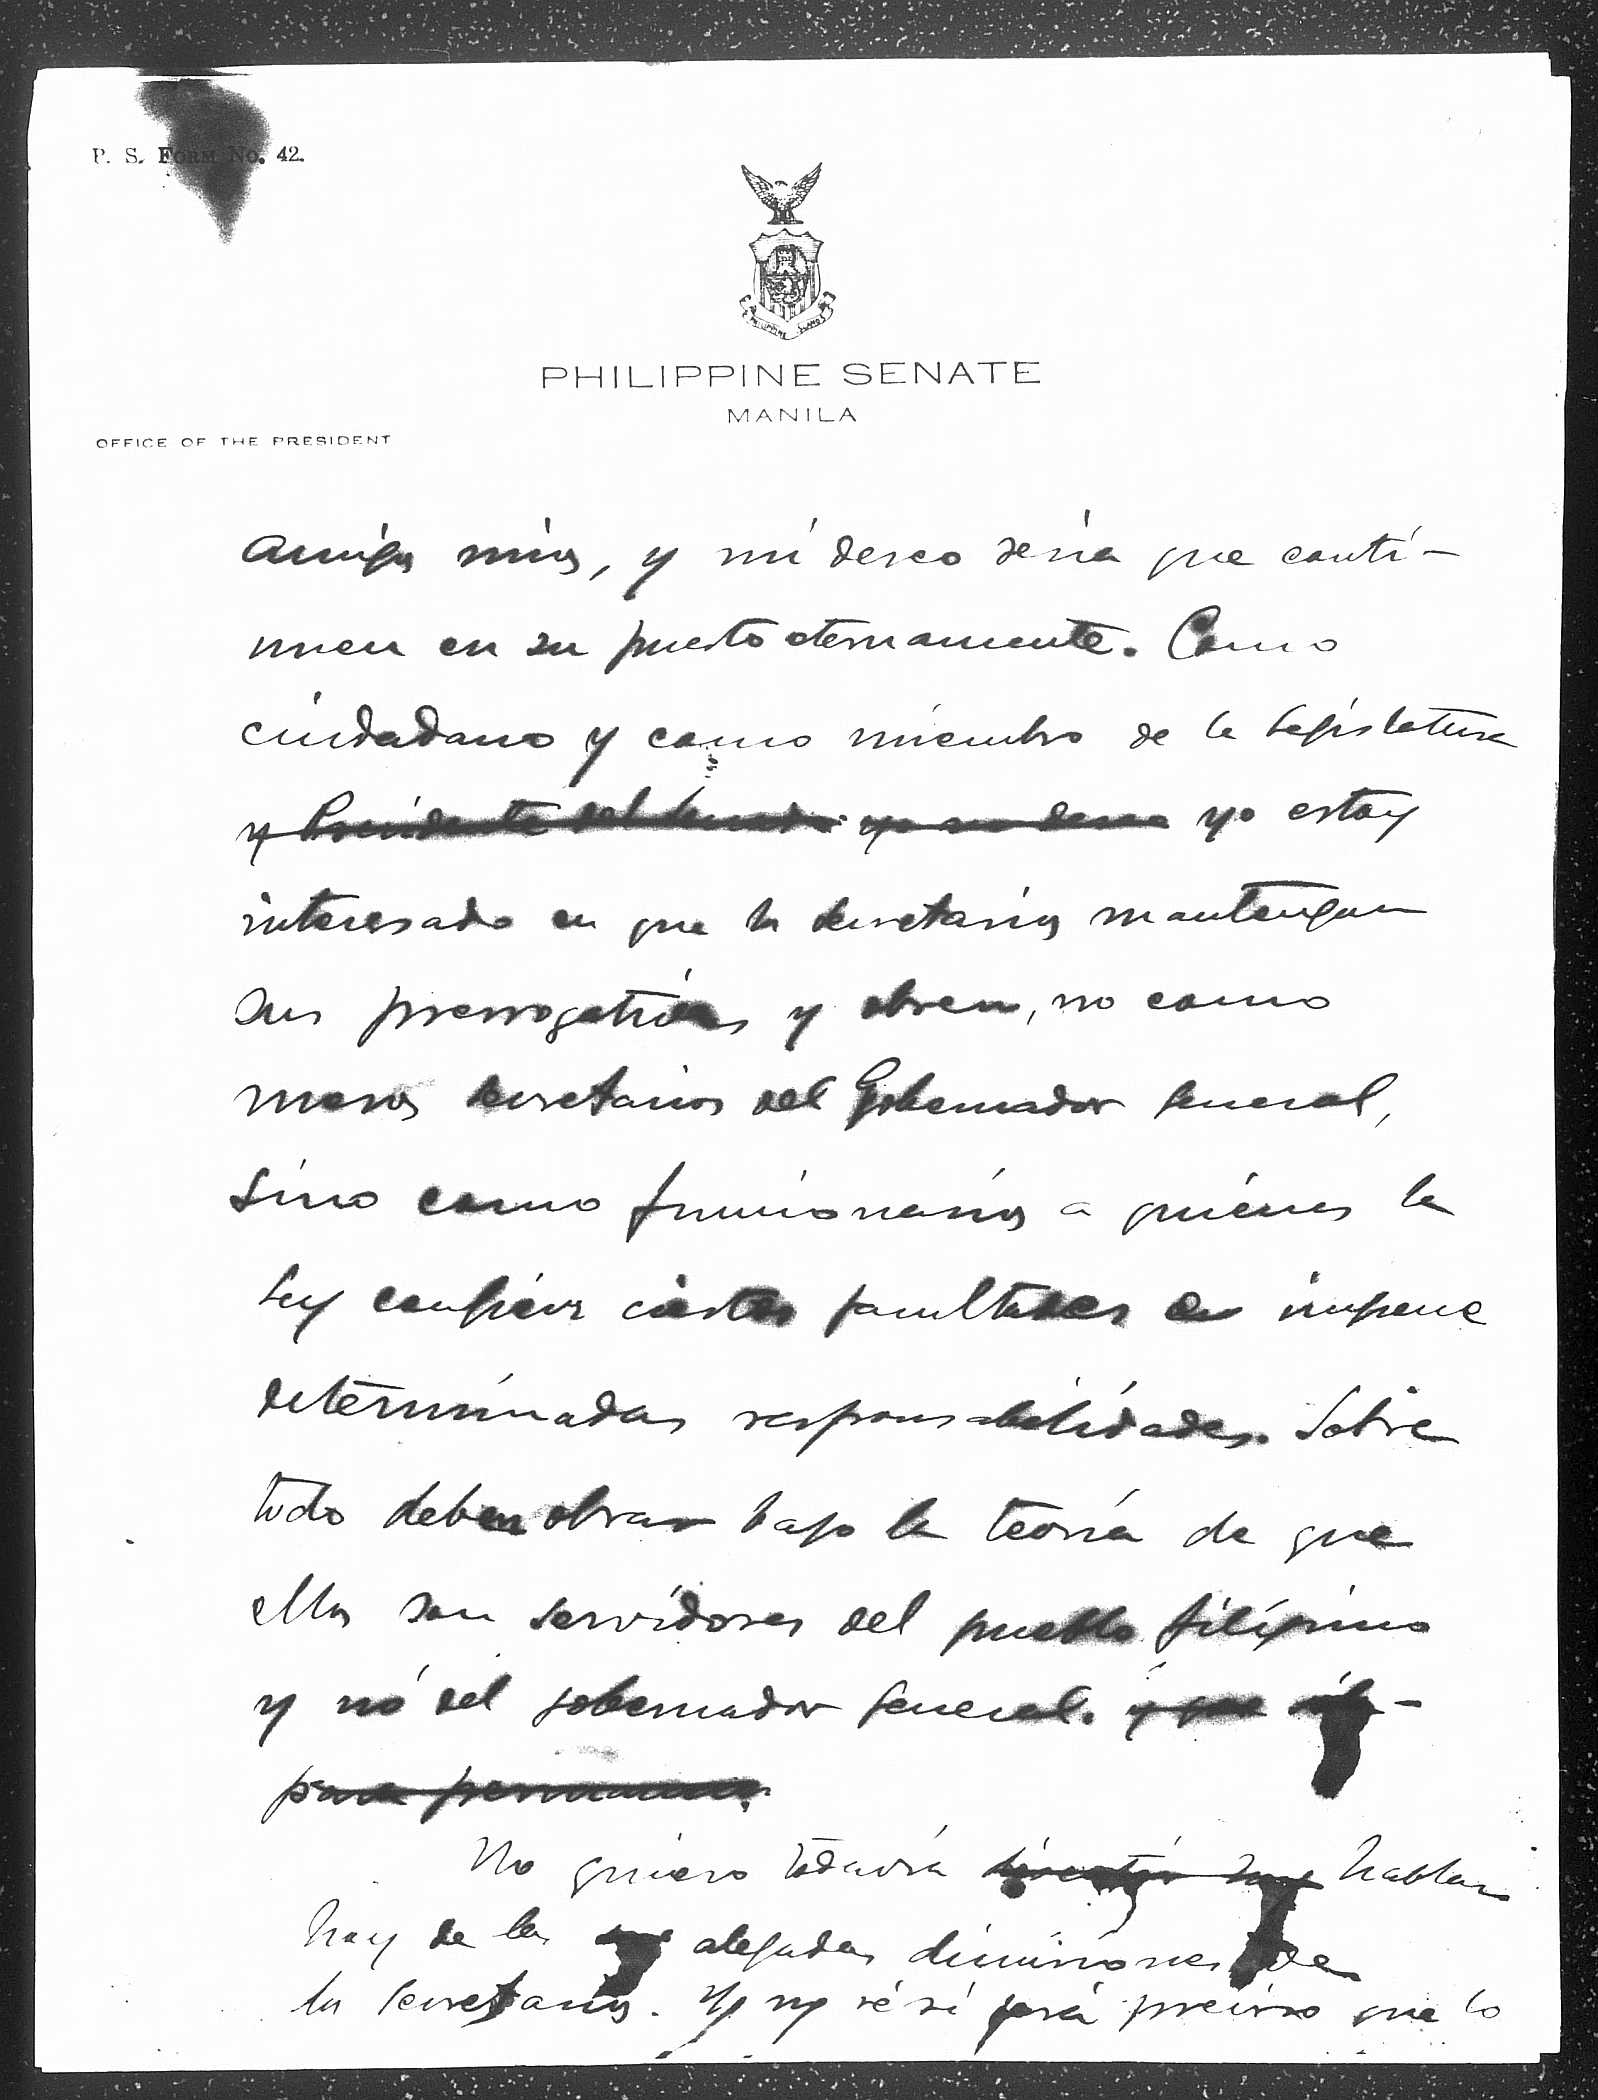 P. S. FORM NO. 42.
PHILIPPINE ISLANDS
PHILIPPINE SENATE
MANILA
OFFICE OF THE PRESIDENT
amigos mios, y mi deseo seria que conti-
nuen en su puesto eternamente. Como
ciudadano y como miembro de la Legislatura
y Presidente del Senado yo no deseo yo estoy
interesado en que los Secretarios mantengan
sus prerrogativas y obren, no como
meros secretarios del Gobernador General,
sino como funcionarios a quienes la
ley confiere ciertas facultades e impone
determinadas responsabilidades. Sobre
todo deben obrar bajo la teoría de que
ellos son servidores del pueblo filipino
y nó del gobernador general. y que
para permanecer.
No quiero todavía hablar
hoy de las alegadas dimisiones de
los Secretarios. Yo no sé si será preciso que lo